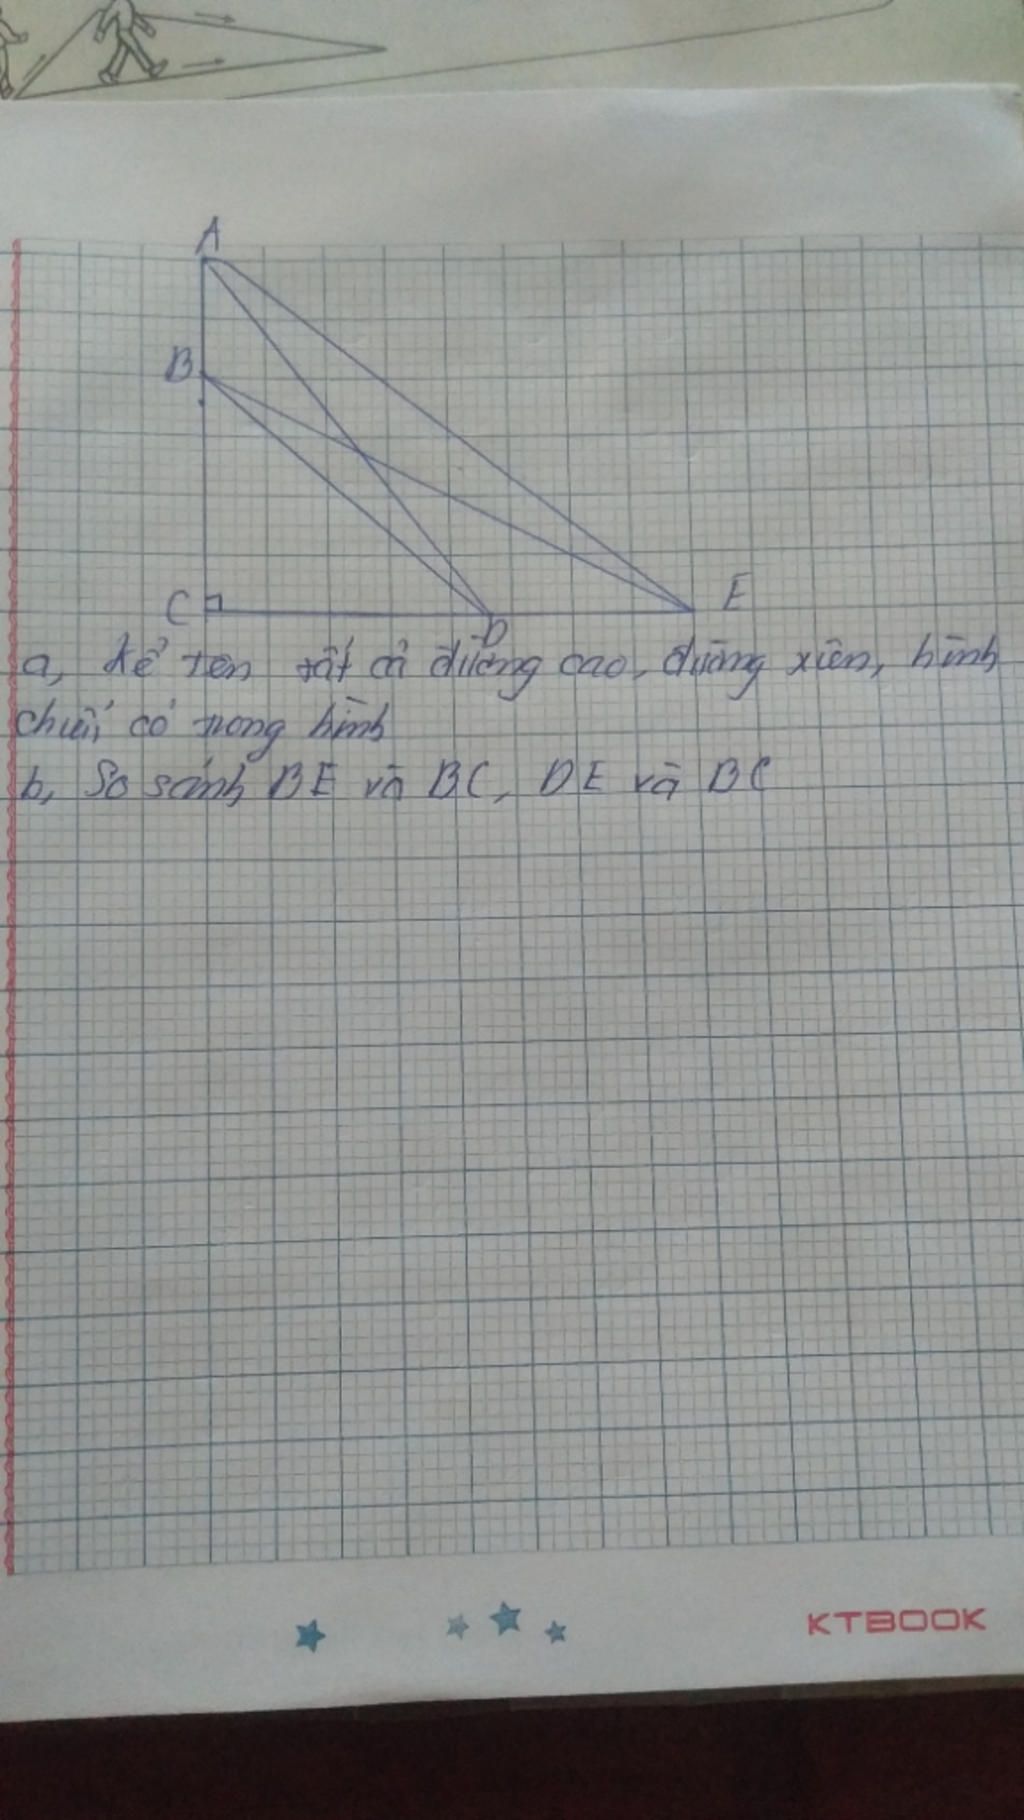 A
B
C
E
D
a, kể tên tất cả đường cao, đường xiên, hình
chiếu có trong hình
b, So sánh BE và BC, DE và BC
KTBOOK